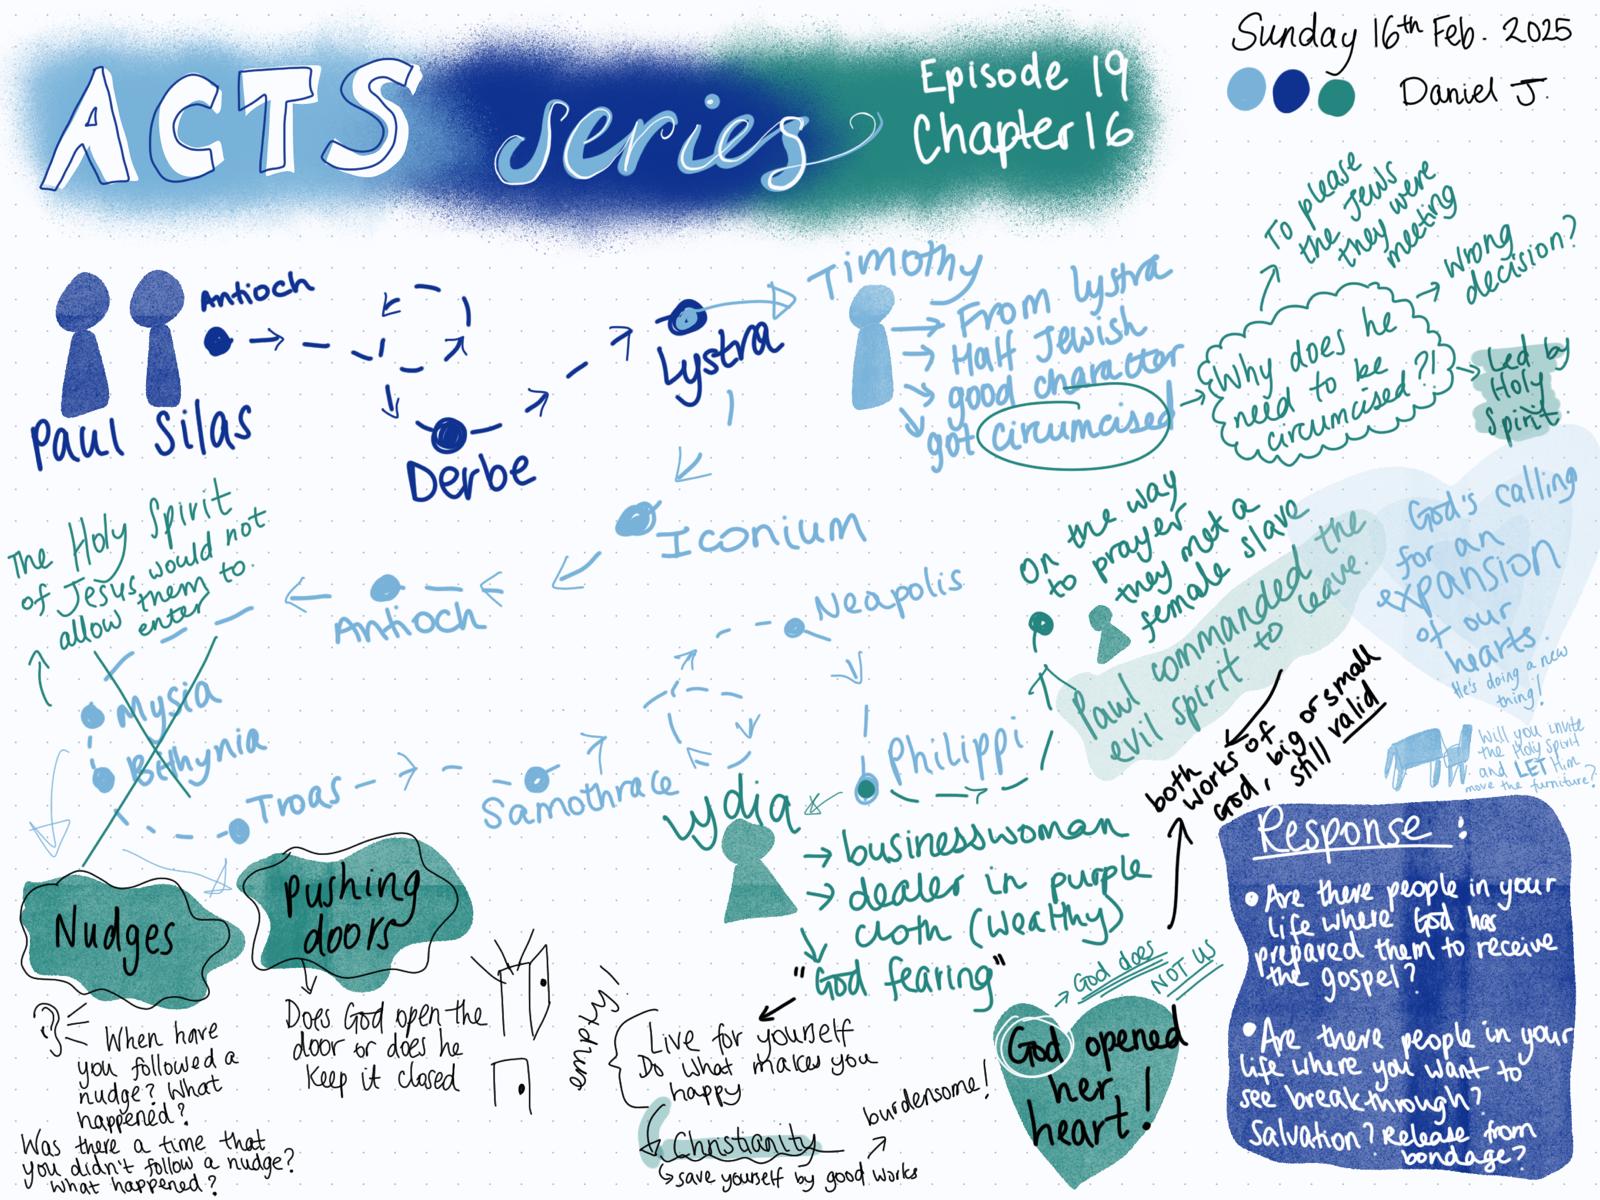 ACTS series
Episode 19
Chapter 16
Sunday 16th Feb. 2025
Daniel J.
Paul Silas
Antioch
Derbe
Lystra
Timothy
→ From Lystra
→ Half Jewish
→ good character
got circumcised
Why does he
need to be
circumcised?!
To please
the Jews
they were
meeting
Wrong
decision?
Led by
Holy
Spirit
Iconium
Antioch
The Holy Spirit
of Jesus would not
allow them to
enter
Mysia
Bithynia
Troas
Samothrace
Neapolis
Philippi
On the way
to prayer
they met a
female slave
Paul commanded the
evil spirit to leave.
God's calling
for an
expansion
of our
hearts.
He's doing a new
thing!
Will you invite
the Holy Spirit
and LET Him
move the furniture?
both
works of
God, big or small
still valid
Lydia
→ businesswoman
→ dealer in purple
cloth (wealthy)
"God fearing"
→ God does
NOT US
God opened
her
heart!
Nudges
When have
you followed a
nudge? What
happened?
Was there a time that
you didn't follow a nudge?
What happened?
pushing
doors
Does God open the
door or does he
keep it closed
empty
Live for yourself
Do what makes you
happy
Christianity
save yourself by good works
burdensome!
Response:
• Are there people in your
life where God has
prepared them to receive
the gospel?
• Are there people in your
life where you want to
see breakthrough?
Salvation? Release from
bondage?